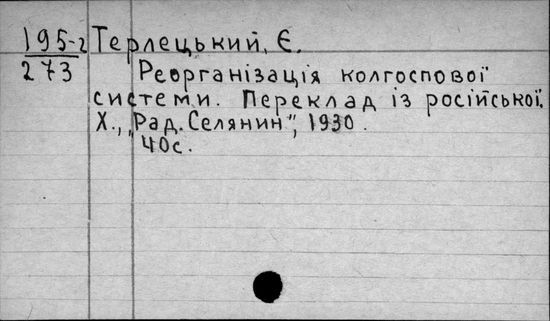 195-2 Терлецький, Є.
273 Реорганізація колгоспової
системи. Переклад із російської.
Х., „Рад. Селянин", 1930.
40с.